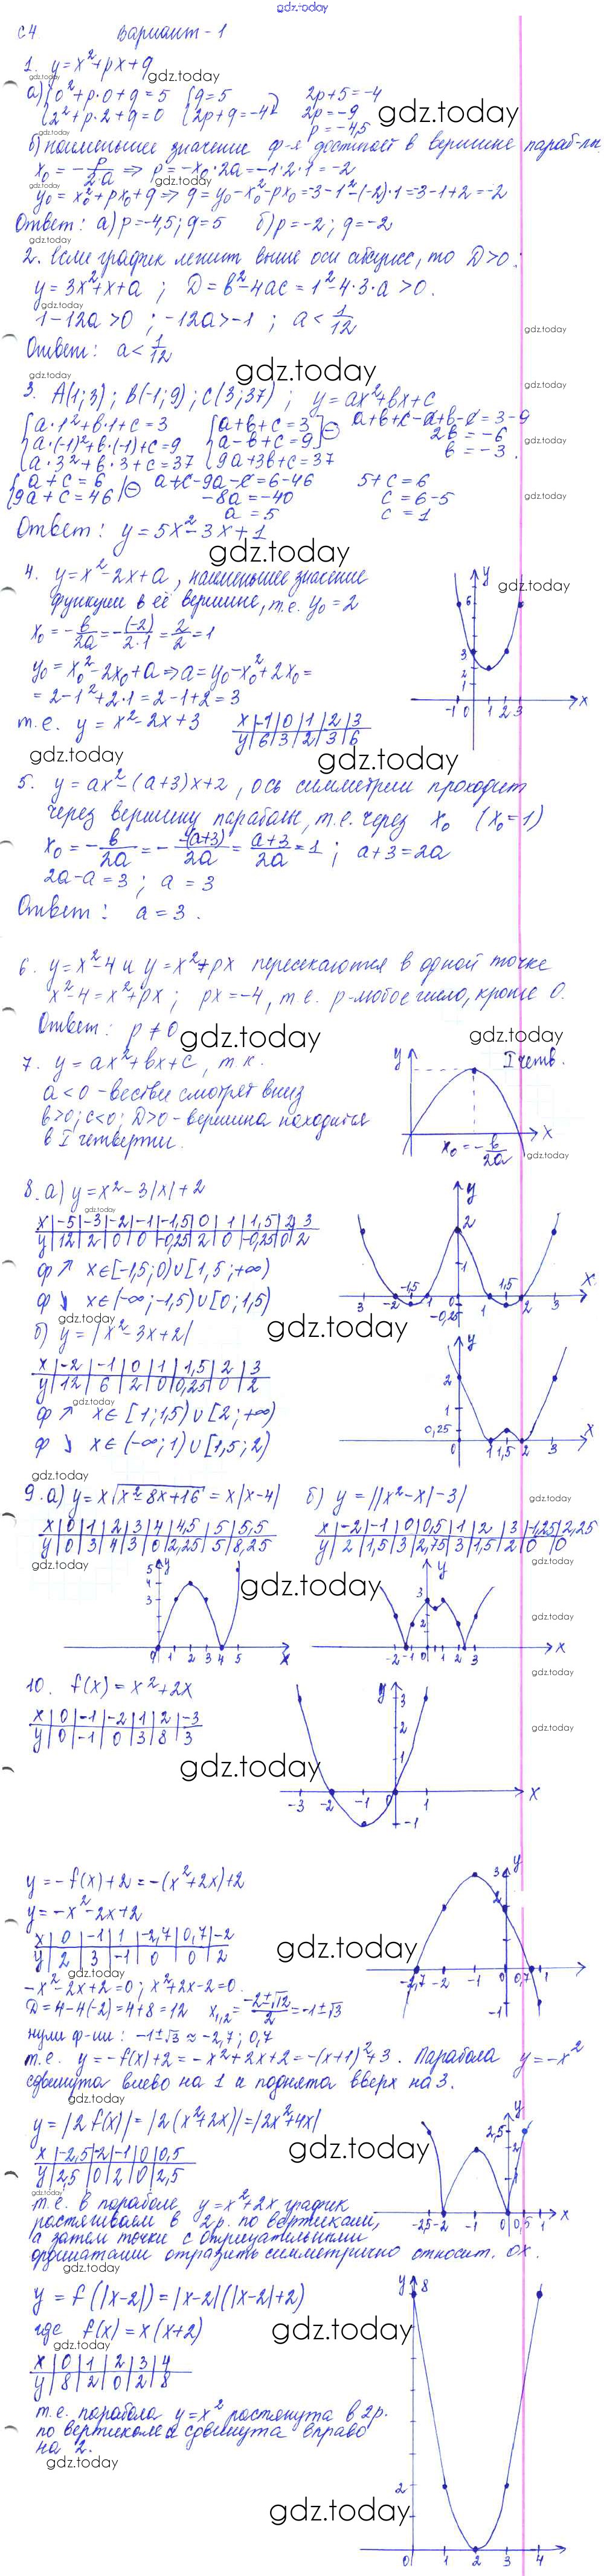 gdz.today
С4 Вариант-1
1. y=x²+px+q
gdz.today
а) {0²+p·0+q=5 {q=5 2p+5=-4
{2²+p·2+q=0 {2p+q=-4 2p=-9
p=-4,5
gdz.today
б) наименьшее значение ф-я достигает в вершине
x₀=-p/2a ⇒ p=-x₀·2a=-1·2·1=-2
y₀=x₀²+px₀+q ⇒ q=y₀-x₀²-px₀=-3-1²-(-2)·1=-3-1+2=-2
Ответ: а) p=-4,5; q=5 б) p=-2; q=-2
gdz.today
2. Если график лежит выше оси абсцисс, то D>0.
y=3x²+x+a ; D=b²-4ac=1²-4·3·a>0.
1-12a>0 ; -12a>-1 ; a<1/12
Ответ: a<1/12
gdz.today
3. A(1;3) ; B(-1;9) ; C(3;37) ; y=ax²+bx+c
{a·1²+b·1+c=3 {a+b+c=3 a+b+c-a+b-c=3-9
{a·(-1)²+b·(-1)+c=9 {a-b+c=9 2b=-6
{a·3²+b·3+c=37 {9a+3b+c=37 b=-3.
{a+c=6 a+c-9a-c=6-46 5+c=6
{9a+c=46 -8a=-40 c=6-5
a=5 c=1
Ответ: y=5x²-3x+1
gdz.today
4. y=x²-2x+a, наименьшее значение
функции в её вершине, т.е. y₀=2
x₀=-b/2a=-(-2)/2·1=2/2=1
y₀=x₀²-2x₀+a ⇒ a=y₀-x₀²+2x₀=
=2-1²+2·1=2-1+2=3
т.е. y=x²-2x+3 x|-1|0|1|2|3
y|6|3|2|3|6
gdz.today
5. y=ax²-(a+3)x+2, ось симметрии проходит
через вершину параболы, т.е. через x₀ (x₀=1)
x₀=-b/2a=-(-(a+3))/2a=a+3/2a=1 ; a+3=2a
2a-a=3 ; a=3
Ответ: a=3.
6. y=x²-4 и y=x²+px пересекаются в одной точке
x²-4=x²+px ; px=-4, т.е. p-любое число, кроме 0.
Ответ: p≠0
gdz.today
7. y=ax²+bx+c, т.к. I четв.
a<0-ветви смотрят вниз
b>0; c<0; D>0-вершина находится
в I четверти. x₀=-b/2a
8. а) y=x²-3|x|+2
x|-5|-3|-2|-1|-1,5|0|1|1,5|2|3
y|12|2|0|0|-0,25|2|0|-0,25|0|2
ф ↗ x∈[-1,5;0)∪[1,5;+∞)
ф ↘ x∈(-∞;-1,5)∪[0;1,5)
gdz.today
б) y=|x²-3x+2|
x|-2|-1|0|1|1,5|2|3
y|12|6|2|0|0,25|0|2
ф ↗ x∈[1;1,5)∪[2;+∞)
ф ↘ x∈(-∞;1)∪[1,5;2)
gdz.today
9. а) y=x√(x²-8x+16)=x|x-4| б) y=||x²-x|-3|
x|0|1|2|3|4|4,5|5|5,5 x|-2|-1|0|0,5|1|2|3|-1,25|2,25
y|0|3|4|3|0|2,25|5|8,25 y|2|1,5|3|2,75|3|1,5|2|0|0
gdz.today
10. f(x)=x²+2x
x|0|-1|-2|1|2|-3
y|0|-1|0|3|8|3
gdz.today
y=-f(x)+2=-(x²+2x)+2
y=-x²-2x+2
x|0|-1|1|-2,7|0,7|-2
y|2|3|-1|0|0|2
gdz.today
-x²-2x+2=0; x²+2x-2=0.
D=4-4(-2)=4+8=12 x₁,₂=-2±√12/2=-1±√3
нули ф-ии: -1±√3≈-2,7; 0,7
т.е. y=-f(x)+2=-x²+2x+2=-(x+1)²+3. Парабола y=-x²
сдвинута влево на 1 и поднята вверх на 3.
gdz.today
y=|2f(x)|=|2(x²+2x)|=|2x²+4x|
x|-2,5|-2|-1|0|0,5
y|2,5|0|2|0|2,5
gdz.today
т.е. в параболе y=x²+2x график
растягиваем в 2р. по вертикали,
а затем точки с отрицательными
ординатами отразить симметрично относит. OX.
gdz.today
y=f(|x-2|)=|x-2|(|x-2|+2)
где f(x)=x(x+2)
gdz.today
x|0|1|2|3|4
y|8|2|0|2|8
т.е. парабола y=x² растянута в 2р.
по вертикали и сдвинута вправо
на 2.
gdz.today